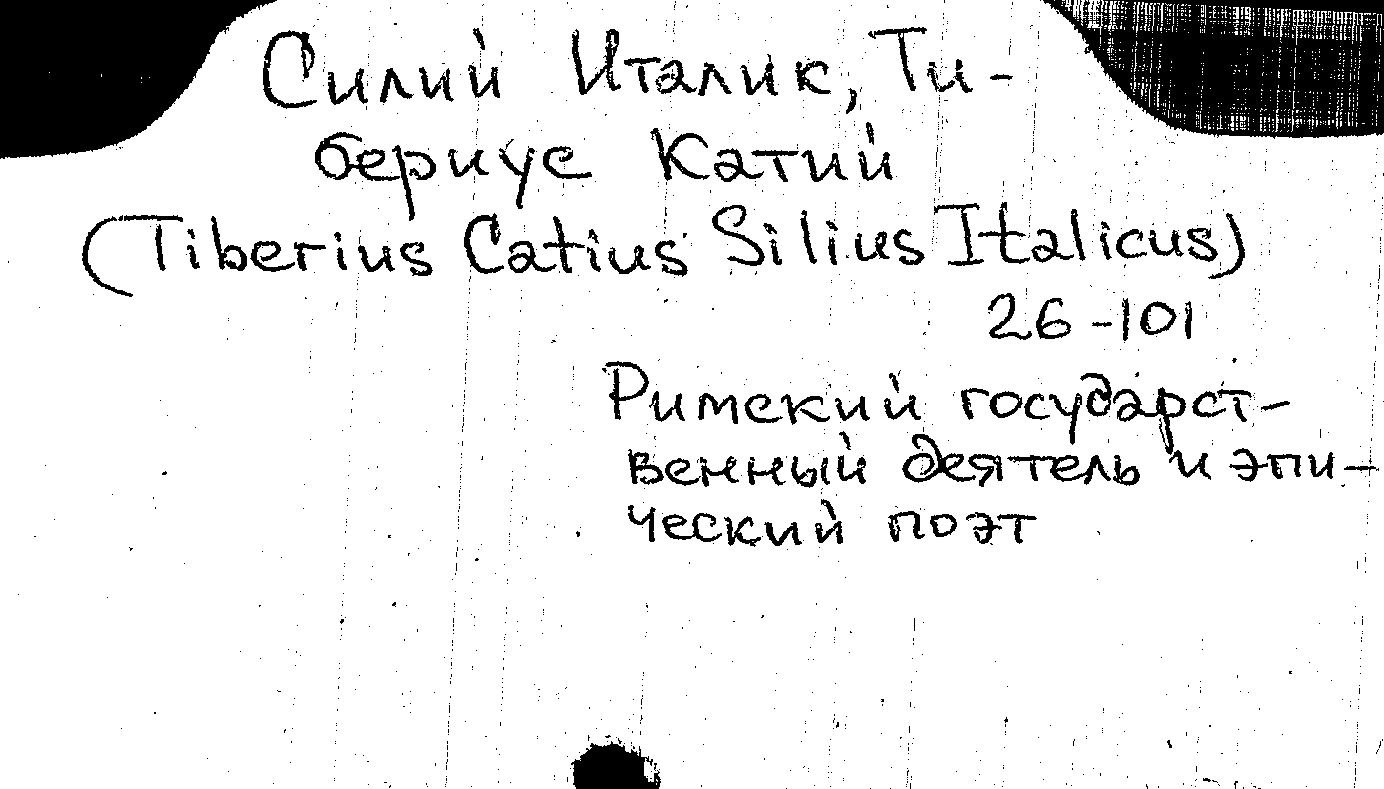 Силий Италик, Ти-
бериус Катий
(Tiberius Catius Silius Italicus)
26-101
Римский государст-
венный деятель и эпи-
ческий поэт